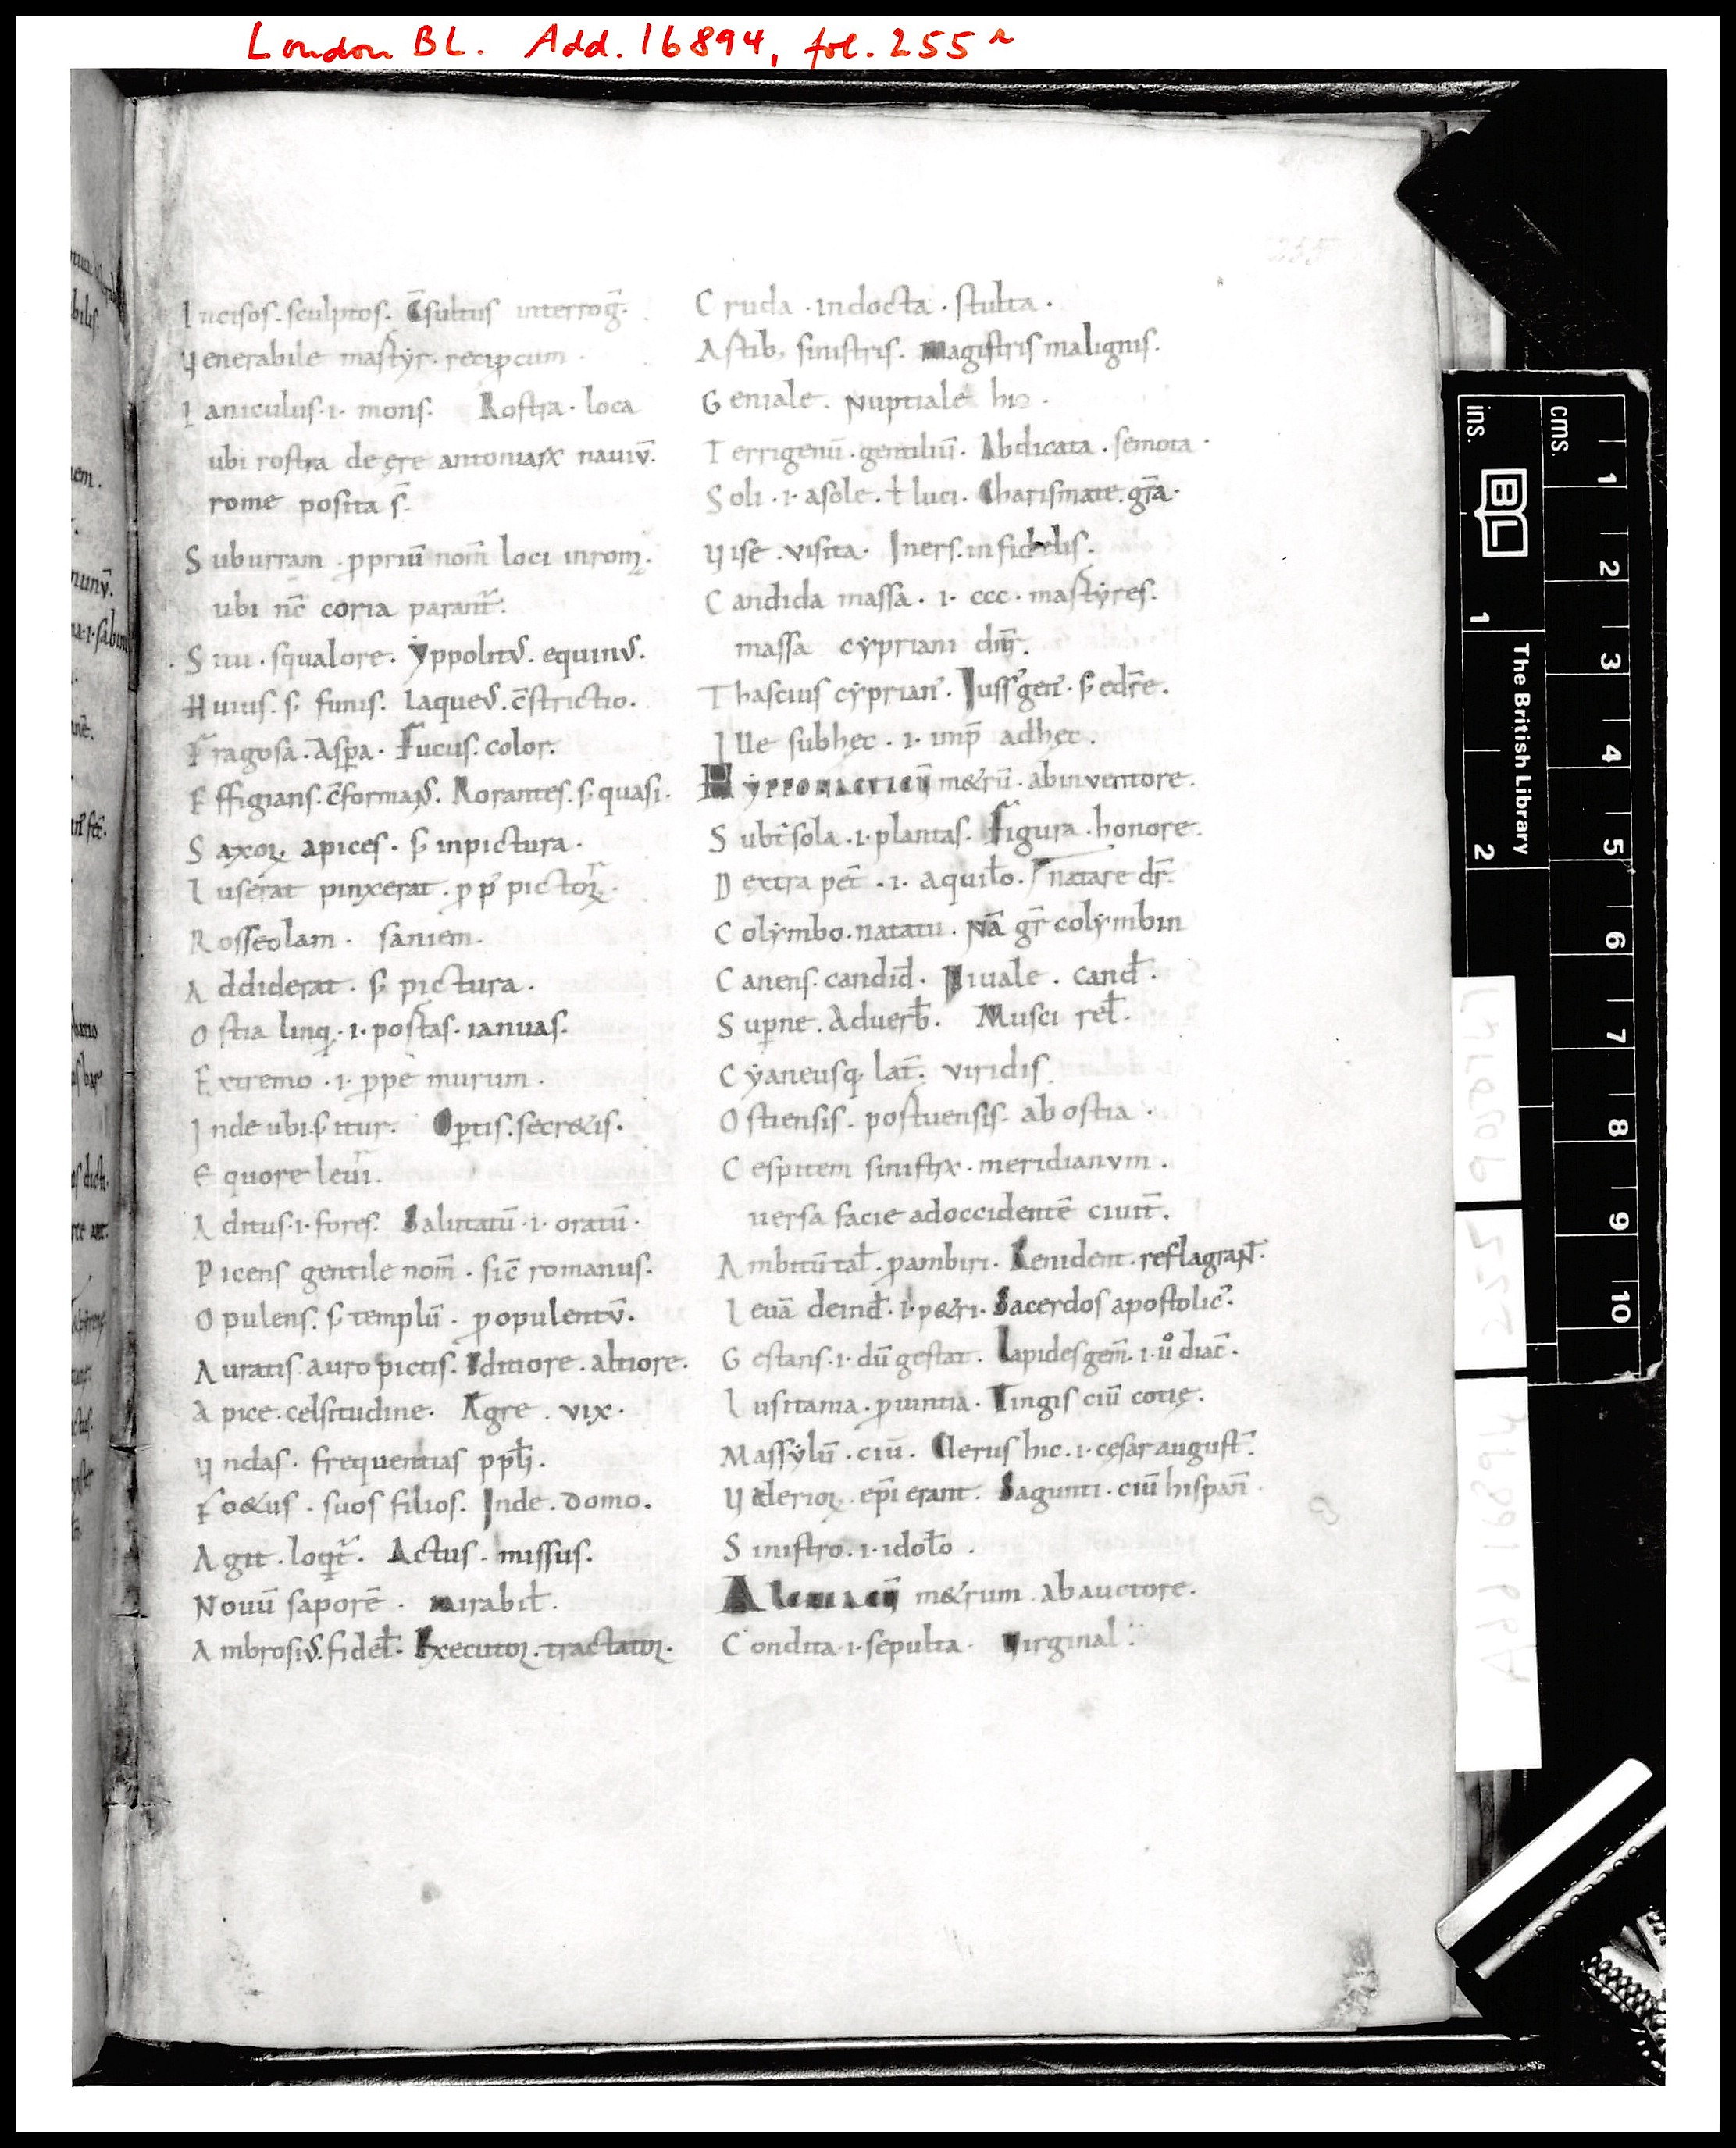 London BL. Add. 16894, fol. 255r
Incisos. sculptos. C̄sultus interroḡ.
Venerabile martyr. recipe cum.
Ianiculus ·i· mons. Rostra · loca
ubi rostra de ęre antoniarx nauiū.
rome posita s̄.
Suburram ꝓpriū nom̄ loci in romę.
ubi nc̄ coria parant̄.
Situ. squalore. Yppolitus. equinus.
Huius. s. funis. laqueus. c̄strictio.
Fragosa. Aspꝑa. Fucus. color.
Effigians. c̄formans. Rorantes. s. quasi.
Saxoꝝ apices. s. in pictura.
Luserat pinxerat. ꝓp̄ pictoꝝ.
Rosseolam. saniem.
Addiderat. s. pictura.
Ostia linq; ·i· portas. ianuas.
Extremo ·i· ꝓpe murum.
Inde ubi s̄ itur. Opꝑtis. secr&is.
Equore leui.
Aditus ·i· fores. Salutatū ·i· oratū.
Picens gentile nom̄. sic̄ romanus.
Opulens. s. templū. ꝓ opulentū.
Auratis. auro pictis. Editiore. altiore.
Apice. celsitudine. Aegre. vix.
Vndas. frequentias ppłi.
Fo&us. suos filios. Inde. domo.
Agit. loqt̄. Actus. missus.
Nouū saporē. mirabił.
Ambrosius. fideł. Executoꝝ. tractatoꝝ.
Cruda. indocta. stulta.
Astib; sinistris. magistris malignis.
Geniale. Nuptiale hic.
Terrigenū. gentiliū. Abdicata. semota.
Soli ·i· a sole. ł luci. Charismate. gr̄a.
Vise. visita. Iners. infidelis.
Candida massa ·i· ccc. martyres.
massa cypriani dnr̄.
Thascius cyprian'. Iuss' gen'. s edr̄e.
Ille sub hęc ·i· imp̄ ad hęc.
Hypponacticū m&rū. ab inventore.
Subt̄ sola ·i· plantas. Figura. honore.
Dextra pet̄ ·i· aquiło. Natare dr̄.
Colymbo. natatu. Nā gr̄ colymbin
Canens. candid̄. Niuale. cand̄.
Supꝑne. Aduerb̄. Musci reł.
Cyaneusq; lat̄. viridis
Ostiensis. portuensis. ab ostia.
Cespitem sinistrx. meridianum.
uersa facie ad occidentē ciuit̄.
Ambitū tał. ꝑambiri. Renident. reflagrant.
Leuā deind̄ ·i· p&ri. Sacerdos apostolic'.
Gestans ·i· dū gestat. Lapides gem̄ ·i· u° diac̄.
Lusitania. ꝓuintia. Tingis ciū cotię.
Massylū. ciū. Clerus hic ·i· cęsar august̄.
Valerioꝝ. ep̄i erant. Sagunti. ciū hispan̄.
Sinistro ·i· idoło.
Alcmacū m&rum ab auctore.
Condita ·i· sepulta. Virginal.
ins.
cms.
BL
The British Library
1
2
1
2
3
4
5
6
7
8
9
10